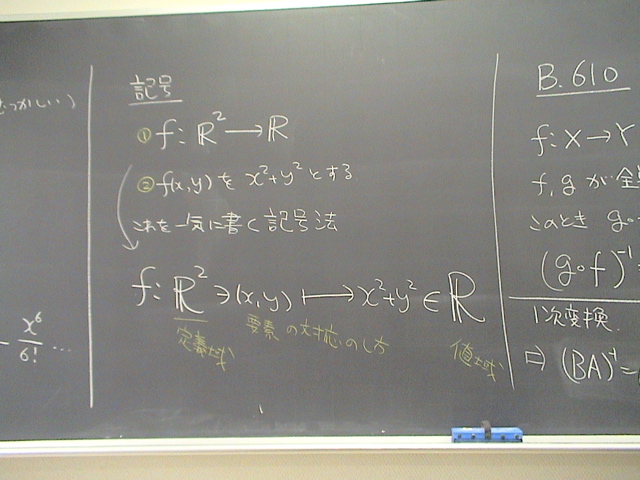 つかしい)
- x⁶/6! ...
記号
① f: ℝ² ⟶ ℝ
② f(x,y) を x²+y² とする
これを一気に書く記号法
f: ℝ² ∋ (x,y) ⟼ x²+y² ∈ ℝ
定義域 要素の対応のし方 値域
B.610
f: X → Y
f, g が全単
このとき g∘
(g∘f)⁻¹
1次変換
⇨ (BA)⁻¹ =